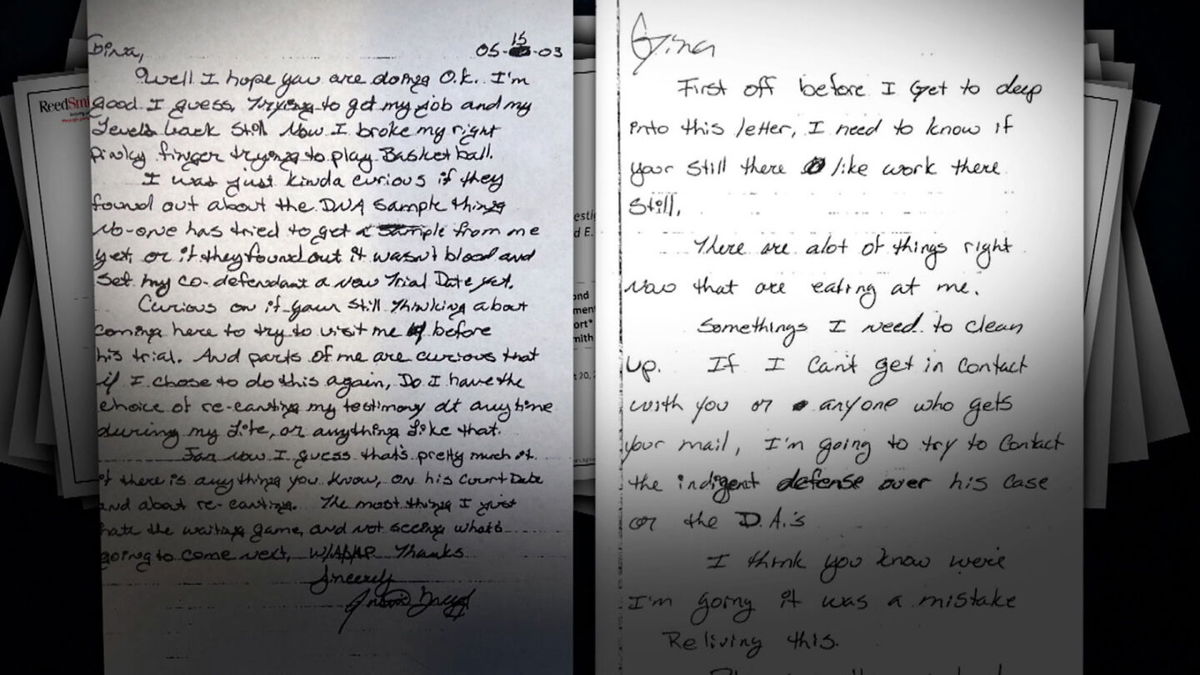 Gina,
05-15-03
Well I hope you are doing O.K. I'm
good I guess, Trying to get my job and my
Levels back still Now I broke my right
pinky finger trying to play Basketball.
I was just kinda curious if they
found out about the DNA sample thing
No-one has tried to get a sample from me
yet, or if they found out it wasn't blood and
set my co-defendant a new Trial Date yet.
Curious on if your still thinking about
coming here to try to visit me before
his trial. And parts of me are curious that
if I chose to do this again, Do I have the
choice of re-canting my testimony at anytime
during my life, or anything like that.
For now I guess that's pretty much it.
if there is anything you know, on his Court Date
and about re-canting. The most thing I just
hate the waiting game, and not seeing what's
going to come next, W/B/ASAP Thanks
Sincerely
Gina
First off before I get to deep
into this letter, I need to know if
your still there like work there
still.
There are alot of things right
now that are eating at me.
Somethings I need to clean
up. If I can't get in contact
with you or anyone who gets
your mail, I'm going to try to contact
the indigent defense over his case
or the D.A.'s
I think you know were
I'm going it was a mistake
Reliving this.
ReedSmi